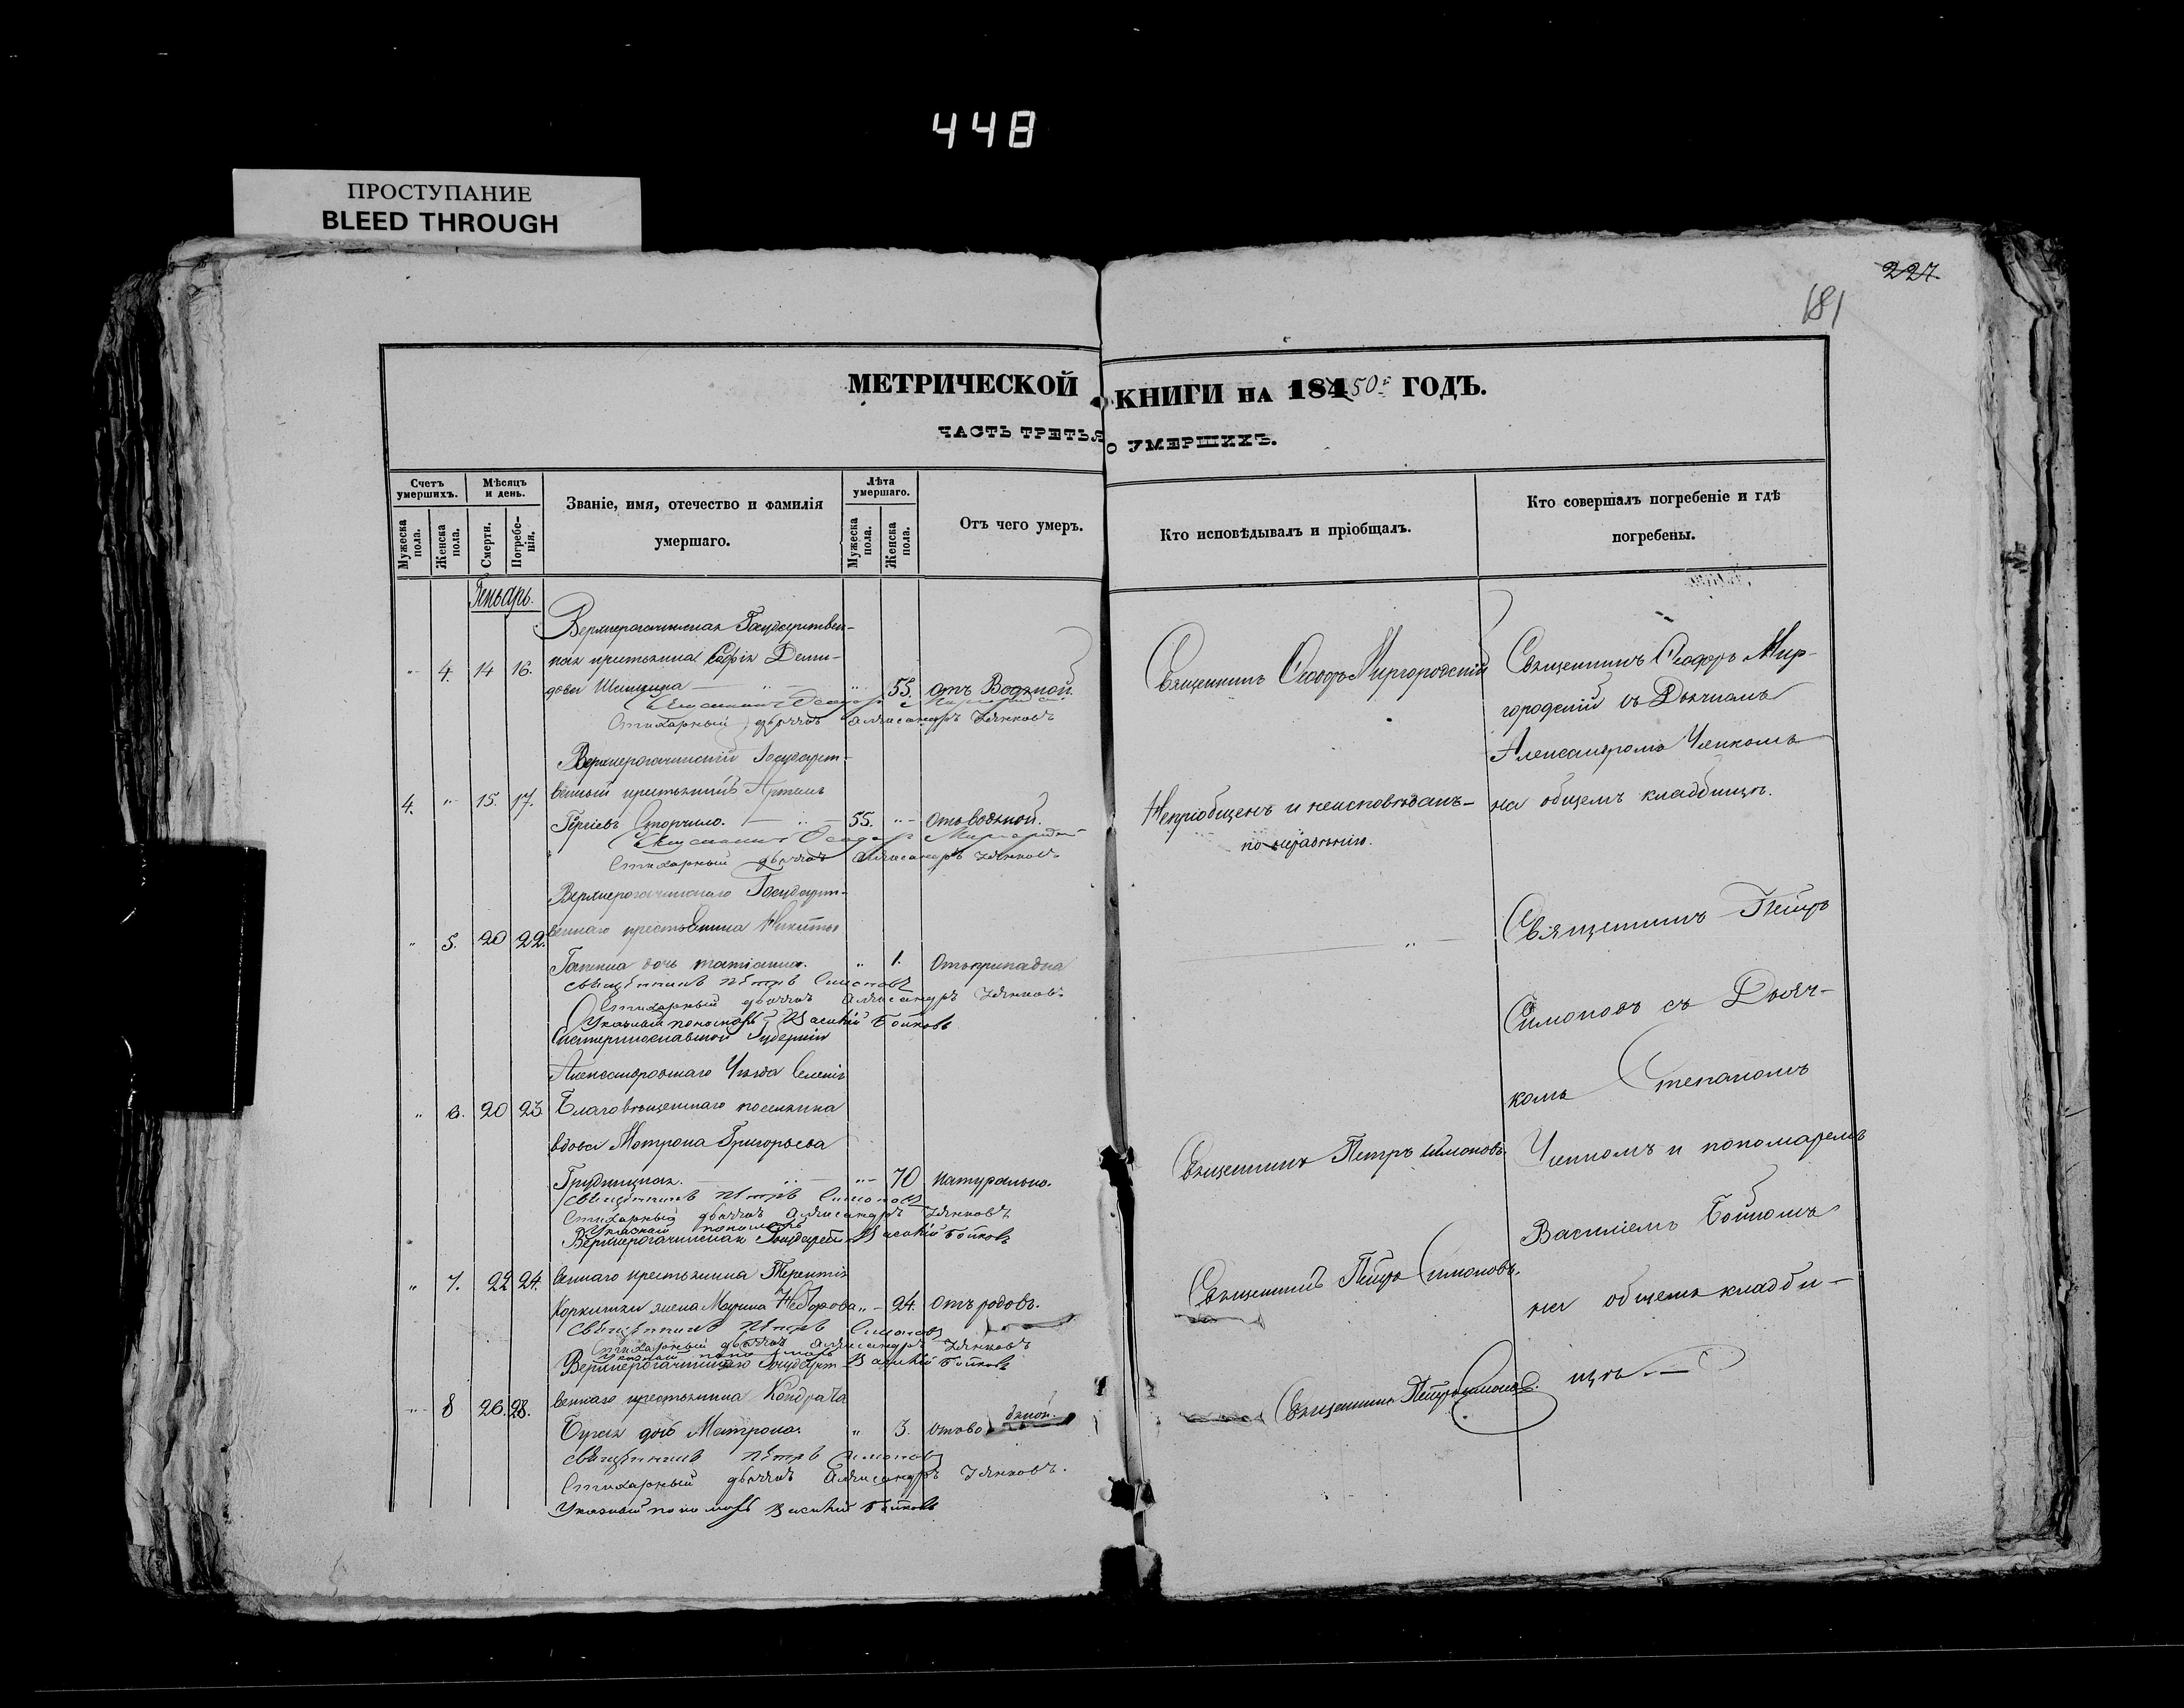 448
ПРОСТУПАНИЕ
BLEED THROUGH
227.
181
МЕТРИЧЕСКОЙ КНИГИ НА 18450 ГОДЪ.
ЧАСТЬ ТРЕТЬЯ О УМЕРШИХЪ.
Счетъ умершихъ.
Мужеска пола.
Женска пола.
Мѣсяцъ и день.
Смерти.
Погребенія.
Званіе, имя, отечество и фамилія
умершаго.
Лѣта умершаго.
Мужеска пола.
Женска пола.
Отъ чего умеръ.
Кто исповѣдывалъ и пріобщалъ.
Кто совершалъ погребеніе и гдѣ
погребены.
Генварь.
Верхнерогачинская Государствен-
ная крестьянка Софія Деми-
" 4. 14 16.
дова Шишкина " 55. отъ Водяной.
Священникъ Ѳеодоръ Миргородскій
Стихарный дьячокъ Александръ
Верхнерогачинскій Государст-
венный крестьянинъ Артемъ
4. " 15. 17.
Сторчило. 55. " отъ водяной.
Священникъ Ѳеодоръ Миргородскій
Стихарный дьячокъ Александръ
Верхнерогачинскаго Государст-
веннаго крестьянина Никиты
" 5. 20 22.
дочь Татіанна. " 1. Отъ припадка
Священникъ Петръ Симоновъ
Стихарный дьячокъ Александръ
Указный пономарь Василій Бойковъ
Екатеринославской Губерніи
Александровскаго Уѣзда Селенія
" 6. 20 23. Благовѣщеннаго поселянина
вдова Матрона Григорьева
" 70 натурально.
Священникъ Петръ Симоновъ
Стихарный дьячокъ Александръ
Указный пономарь Василій Бойковъ
Верхнерогачинская Государст-
" 7. 22 24. веннаго крестьянина Терентія
жена Марина Федорова " 24. отъ родовъ.
Священникъ Петръ Симоновъ
Стихарный дьячокъ Александръ
Указный пономарь Василій Бойковъ
Верхнерогачинскаго Государст-
" 8 26. 28. веннаго крестьянина Кондрата
дочь Матрона. " 3. отъ водяной.
Священникъ Петръ Симоновъ
Стихарный дьячокъ Александръ
Указный пономарь Василій Бойковъ
Священникъ Ѳеодоръ Миргородскій
Непріобщенъ и неисповѣданъ
по нерадѣнію.
Священникъ Петръ Симоновъ.
Священникъ Петръ Симоновъ.
Священникъ Петръ Симоновъ.
Священникъ Ѳеодоръ Мир-
городскій съ Дьячкомъ
Александромъ
на общемъ кладбищѣ.
Священникъ Петръ
Симоновъ съ Дьяч-
комъ Степаномъ
и пономаремъ
Василіемъ Бойкомъ
на общемъ кладби-
щѣ.